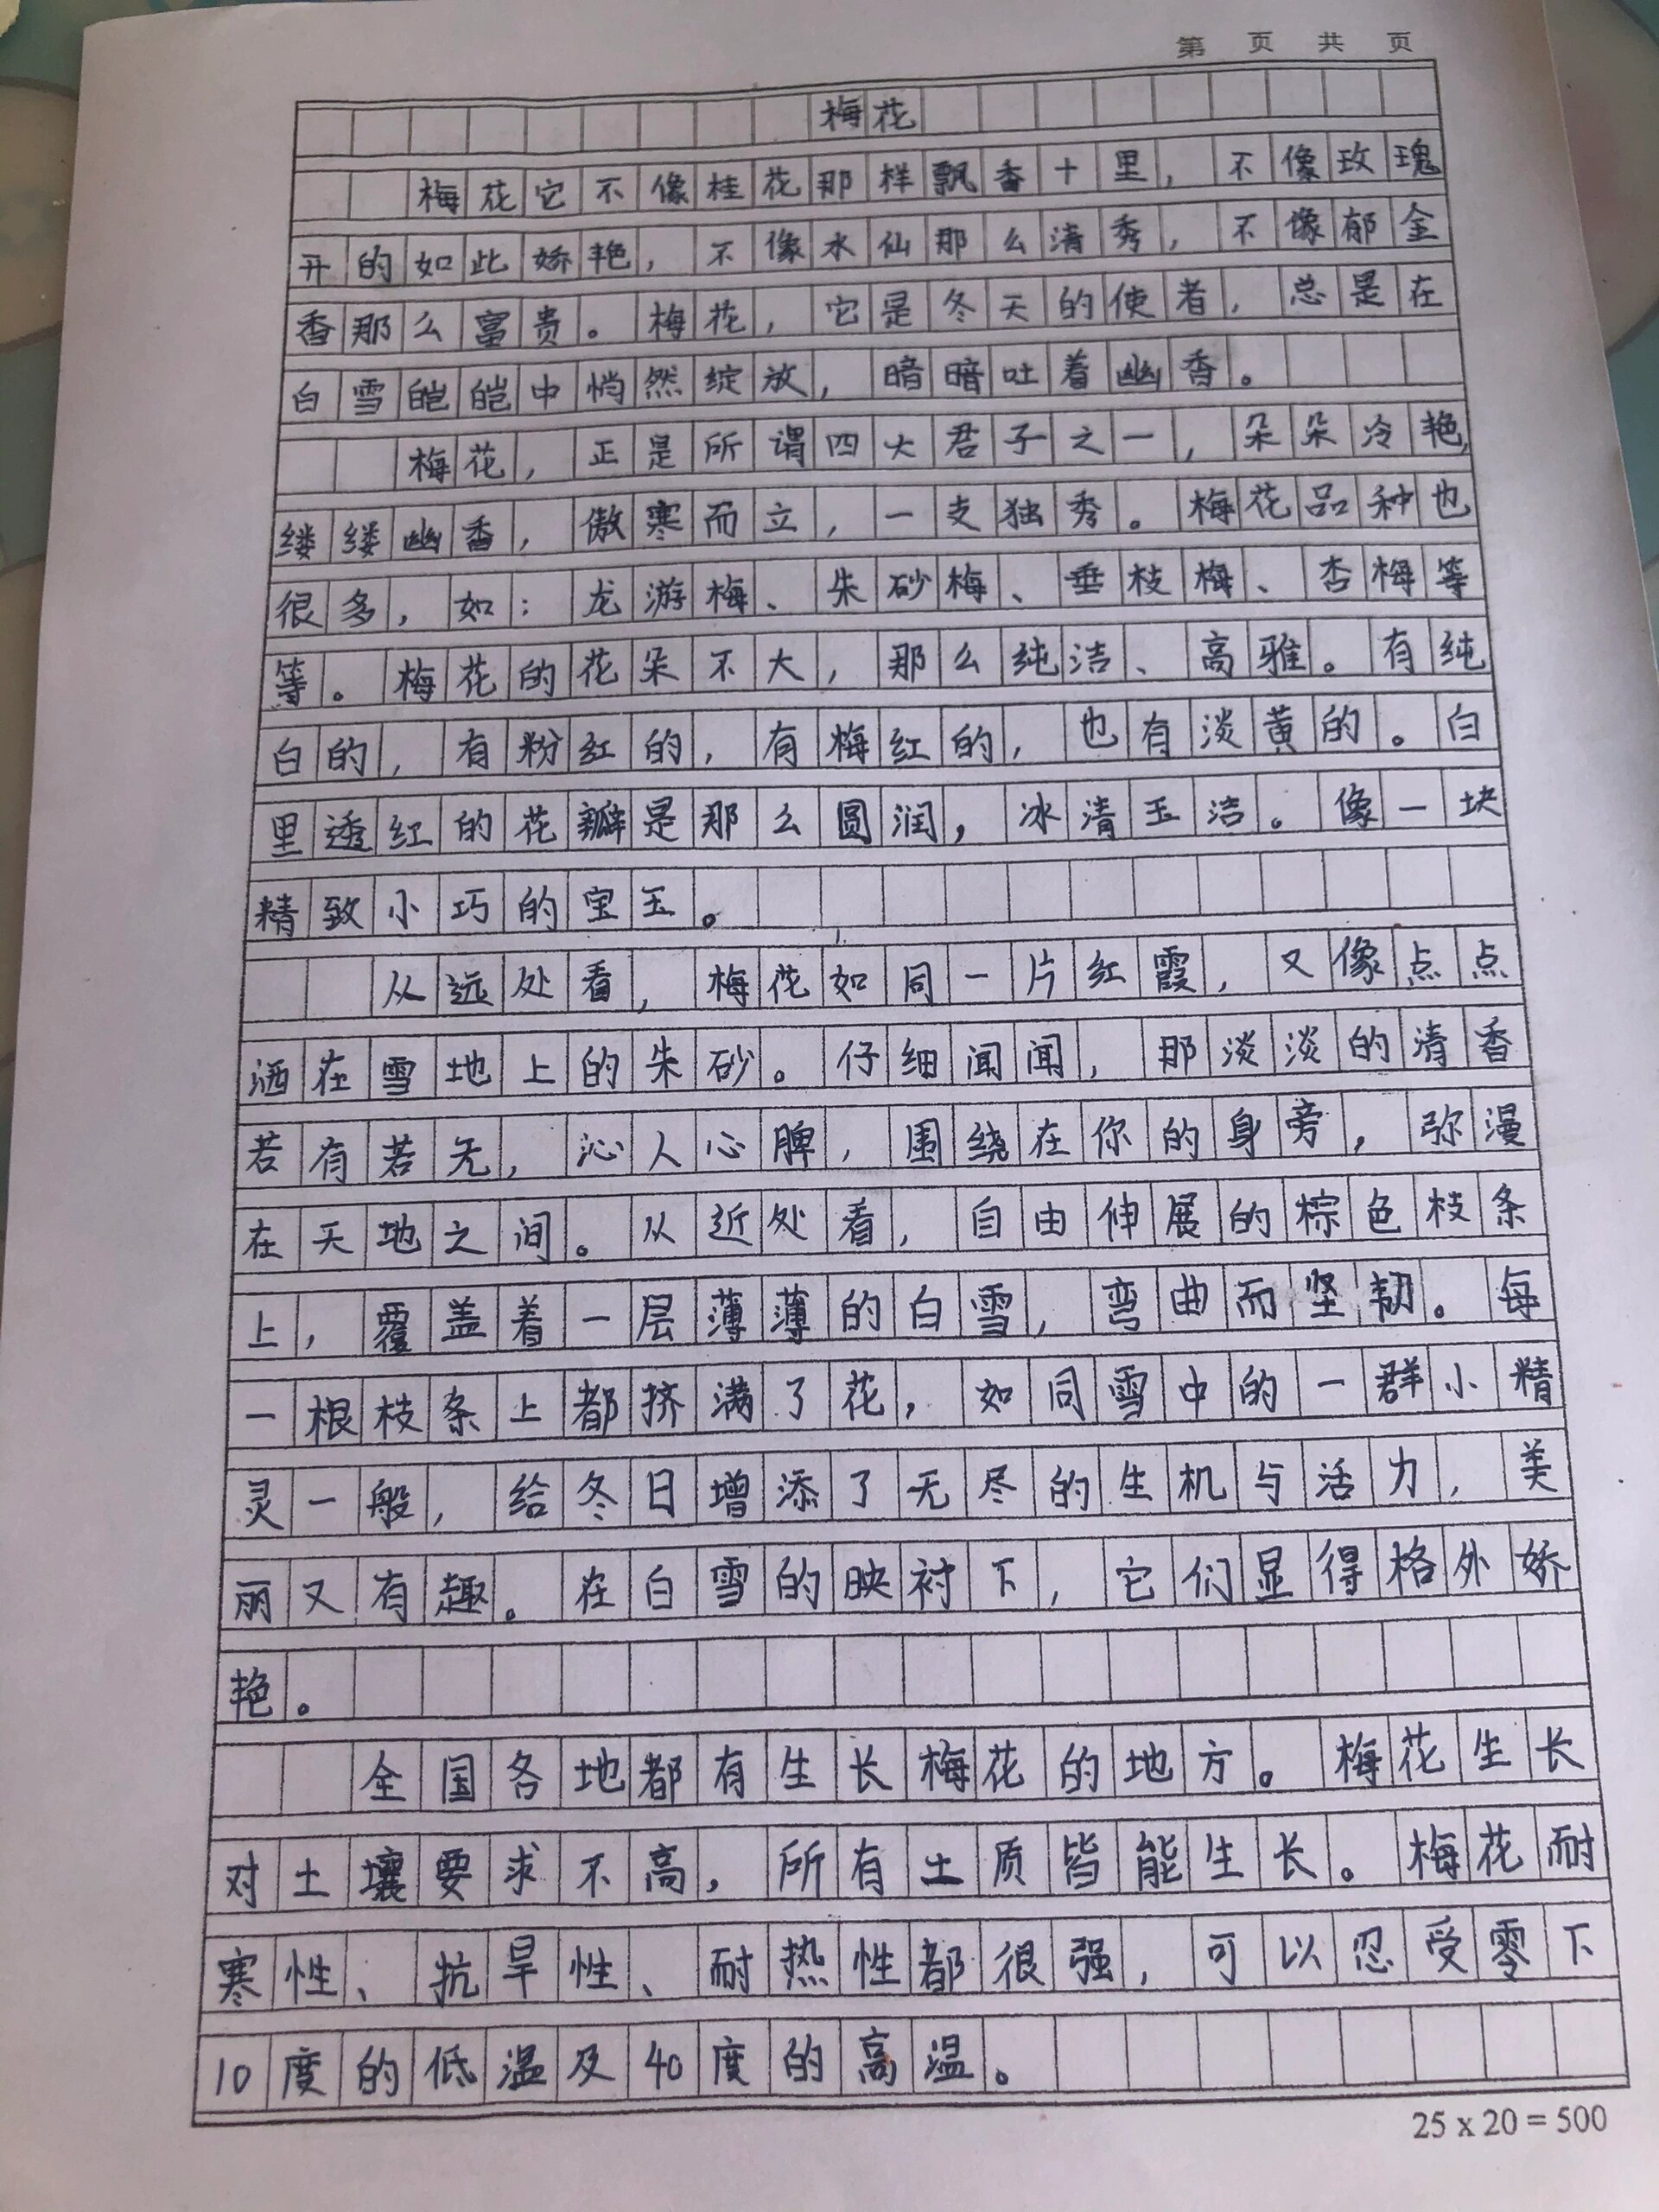 第 页 共 页
梅花
梅花它不像桂花那样飘香十里，不像玫瑰
开的如此娇艳，不像水仙那么清秀，不像郁金
香那么富贵。梅花，它是冬天的使者，总是在
白雪皑皑中悄然绽放，暗暗吐着幽香。
梅花，正是所谓四大君子之一，朵朵冷艳，
缕缕幽香，傲寒而立，一支独秀。梅花品种也
很多，如：龙游梅、朱砂梅、垂枝梅、杏梅等
等。梅花的花朵不大，那么纯洁、高雅。有纯
白的，有粉红的，有梅红的，也有淡黄的。白
里透红的花瓣是那么圆润，冰清玉洁。像一块
精致小巧的宝玉。
从远处看，梅花如同一片红霞，又像点点
洒在雪地上的朱砂。仔细闻闻，那淡淡的清香
若有若无，沁人心脾，围绕在你的身旁，弥漫
在天地之间。从近处看，自由伸展的棕色枝条
上，覆盖着一层薄薄的白雪，弯曲而坚韧。每
一根枝条上都挤满了花，如同雪中的一群小精
灵一般，给冬日增添了无尽的生机与活力，美
丽又有趣。在白雪的映衬下，它们显得格外娇
艳。
全国各地都有生长梅花的地方。梅花生长
对土壤要求不高，所有土质皆能生长。梅花耐
寒性、抗旱性、耐热性都很强，可以忍受零下
10度的低温及40度的高温。
25 x 20 = 500